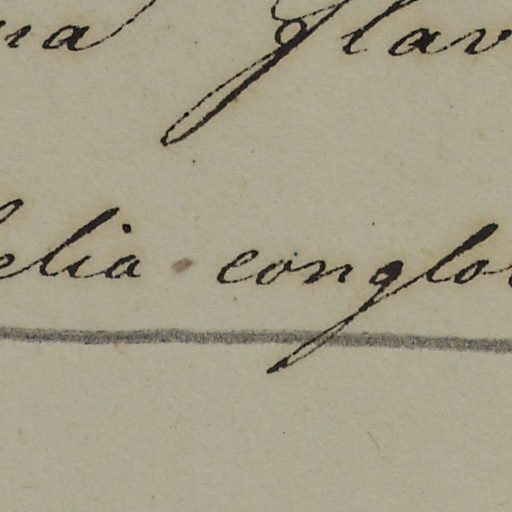 na flav
elia conglo